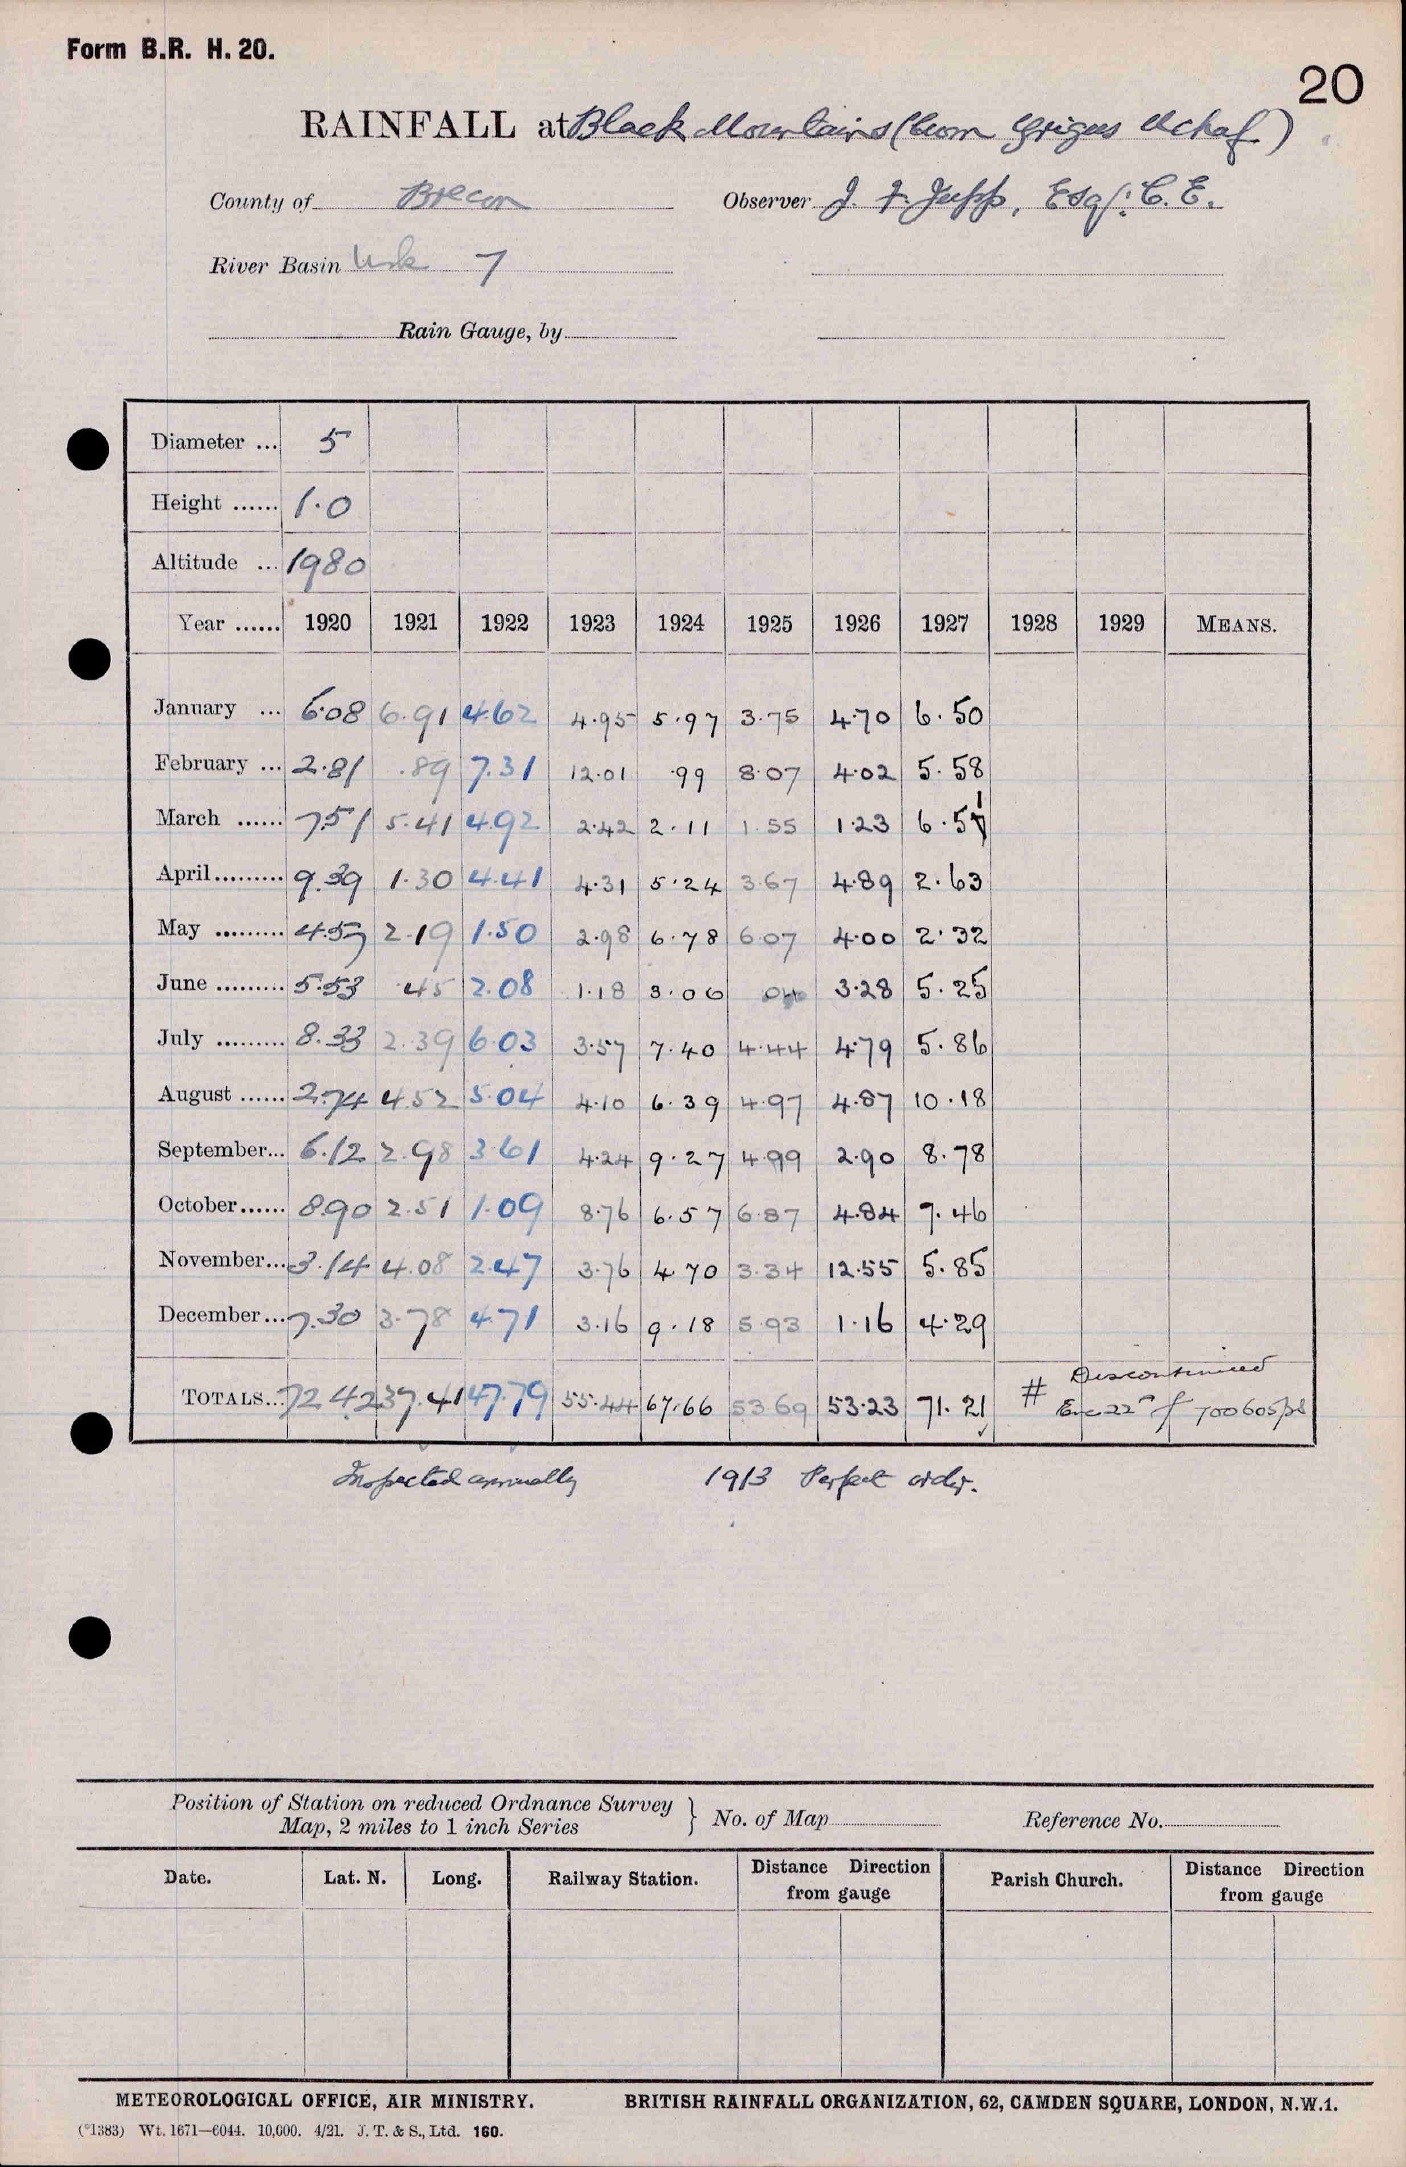 Form B.R. H. 20.
20
RAINFALL at Black Mountains (Cwm Grigws Uchaf)
County of Brecon Observer J. F. Jupp, Esq. C. E.
River Basin Usk 7
Rain Gauge, by
Diameter ... 5
Height ...... 1.0
Altitude ... 1980
Year ...... 1920 1921 1922 1923 1924 1925 1926 1927 1928 1929 MEANS.
January ... 6.08 6.91 4.62 4.95 5.97 3.75 4.70 6.50
February ... 2.81 .89 7.31 12.01 .99 8.07 4.02 5.58
March ...... 7.51 5.41 4.92 2.42 2.11 1.55 1.23 6.51
April......... 9.39 1.30 4.41 4.31 5.24 3.67 4.89 2.63
May ......... 4.57 2.19 1.50 2.98 6.78 6.07 4.00 2.32
June ......... 5.53 .45 2.08 1.18 3.06 .04 3.28 5.25
July ......... 8.33 2.39 6.03 3.57 7.40 4.44 4.79 5.86
August ...... 2.74 4.52 5.04 4.10 6.39 4.97 4.87 10.18
September... 6.12 2.98 3.61 4.24 9.27 4.99 2.90 8.78
October...... 8.90 2.51 1.09 8.76 6.57 6.87 4.84 7.46
November... 3.14 4.08 2.47 3.76 4.70 3.34 12.55 5.85
December... 7.30 3.78 4.71 3.16 9.18 5.93 1.16 4.29
TOTALS... 72.42 37.41 47.79 55.44 67.66 53.69 53.23 71.21 # Discontinued
700605/28
Inspected annually 1913 Perfect order.
Position of Station on reduced Ordnance Survey
Map, 2 miles to 1 inch Series } No. of Map Reference No.
Date. Lat. N. Long. Railway Station. Distance Direction from gauge Parish Church. Distance Direction from gauge
METEOROLOGICAL OFFICE, AIR MINISTRY. BRITISH RAINFALL ORGANIZATION, 62, CAMDEN SQUARE, LONDON, N.W.1.
(*1383) Wt. 1671—6044. 10,000. 4/21. J. T. & S., Ltd. 160.